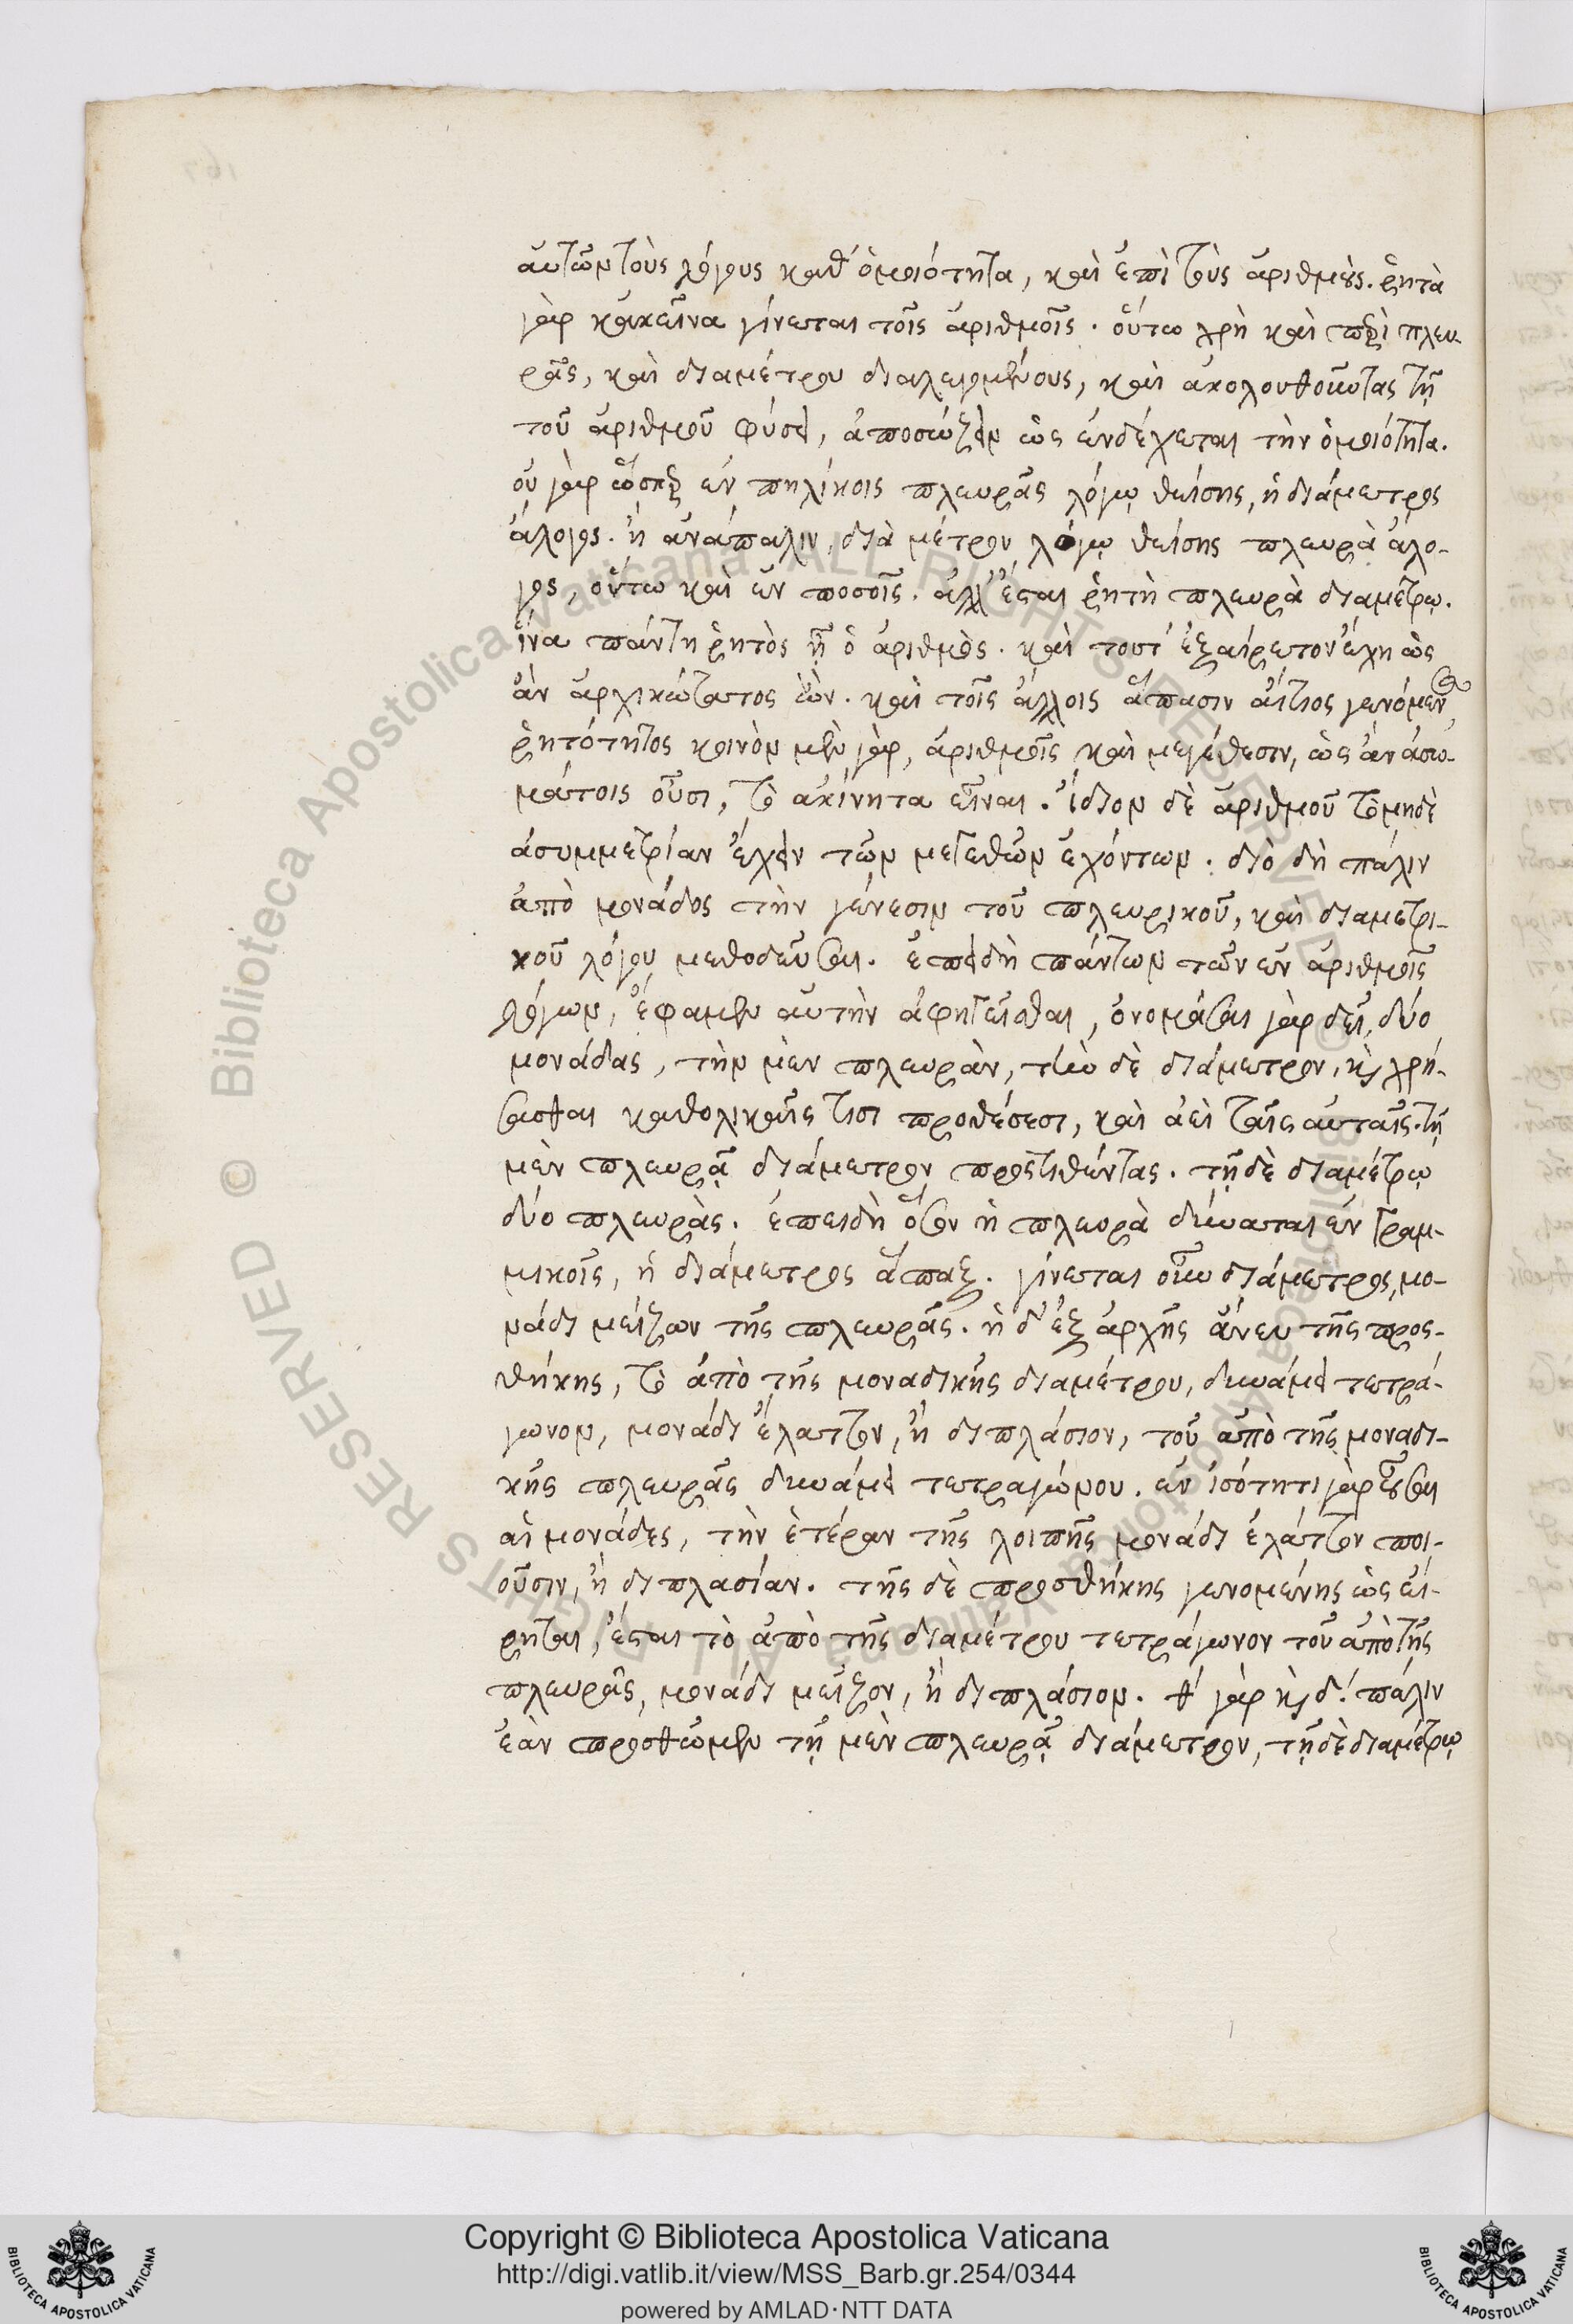 αὐτῶν τοὺς λόγους καθ' ὁμοιότητα, καὶ ἐπὶ τοὺς ἀριθμούς. ῥητὰ
γὰρ κἀκεῖνα γίνεται τοῖς ἀριθμοῖς. οὕτω χρὴ καὶ περὶ πλευ-
ρᾶς, καὶ διαμέτρου διαλεγομένους, καὶ ἀκολουθοῦντας τῇ
τοῦ ἀριθμοῦ φύσει, ἀποσώζειν ὡς ἐνδέχεται τὴν ὁμοιότητα.
οὐ γὰρ ὥσπερ ἐν πηλίκοις πλευρᾶς λόγῳ θείσης, ἡ διάμετρος
ἄλογος. ἢ ἀνάπαλιν, διὰ μέτρου λόγῳ θείσης πλευρὰ ἄλο-
γος, οὕτω καὶ ἐν ποσοῖς. ἀλλ' ἔσται ῥητὴ πλευρὰ διαμέτρῳ.
ἵνα πάντη ῥητὸς ᾖ ὁ ἀριθμὸς. καὶ τοῦτ' ἐξαίρετον ἔχη ὡς
ἂν ἀρχικώτατος ὢν. καὶ τοῖς ἄλλοις ἅπασιν αἴτιος γενόμενος
ῥητότητος κοινὸν μὲν γὰρ, ἀριθμοῖς καὶ μεγέθεσιν, ὡς ἂν ἀσω-
μάτοις οὖσι, τὸ ἀκίνητα εἶναι. ἴδιον δὲ ἀριθμοῦ τὸ μηδὲ
ἀσυμμετρίαν ἔχειν τῶν μεγεθῶν ἐχόντων. διὸ δὴ πάλιν
ἀπὸ μονάδος τὴν γένεσιν τοῦ πλευρικοῦ, καὶ διαμετρι-
κοῦ λόγου μεθοδεῦσαι. ἐπειδὴ πάντων τῶν ἐν ἀριθμοῖς
λόγων, ἔφαμεν αὐτὴν ἀφηγεῖσθαι, ὀνομάσαι γὰρ δεῖ, δύο
μονάδας, τὴν μὲν πλευρὰν, τὴν δὲ διάμετρον, καὶ χρή-
σασθαι καθολικαῖς τισι προθέσεσι, καὶ ἀεὶ ταῖς αὐταῖς. τῇ
μὲν πλευρᾷ διάμετρον προστιθέντας. τῇ δὲ διαμέτρῳ
δύο πλευρὰς. ἐπειδὴ ὅσον ἡ πλευρὰ δύναται ἐν γραμ-
μικοῖς, ἡ διάμετρος ἅπαξ. γίνεται οὖν διάμετρος, μο-
νάδι μείζων τῆς πλευρᾶς. ἡ δ' ἐξ ἀρχῆς ἄνευ τῆς προς-
θήκης, τὸ ἀπὸ τῆς μοναδικῆς διαμέτρου, δυνάμει τετρά-
γωνον, μονάδι ἔλαττον, ἢ διπλάσιον, τοῦ ἀπὸ τῆς μοναδι-
κῆς πλευρᾶς δυνάμει τετραγώνου. ἐν ἰσότητι γὰρ οὖσαι
αἱ μονάδες, τὴν ἑτέραν τῆς λοιπῆς μονάδι ἐλάττον ποι-
οῦσιν, ἢ διπλασίαν. τῆς δὲ προσθήκης γενομένης ὡς εἴ-
ρηται, ἔσται τὸ ἀπὸ τῆς διαμέτρου τετράγωνον τοῦ ἀπὸ τῆς
πλευρᾶς, μονάδι μεῖζον, ἢ διπλάσιον. θʹ γὰρ καὶ δʹ. πάλιν
ἐὰν προσθῶμεν τῇ μὲν πλευρᾷ διάμετρον, τῇ δὲ διαμέτρῳ
© Biblioteca Apostolica Vaticana ALL RIGHTS RESERVED © Biblioteca Apostolica Vaticana ALL RIGHTS RESERVED
BIBLIOTECA APOSTOLICA VATICANA
Copyright © Biblioteca Apostolica Vaticana
http://digi.vatlib.it/view/MSS_Barb.gr.254/0344
powered by AMLAD·NTT DATA
BIBLIOTECA APOSTOLICA VATICANA